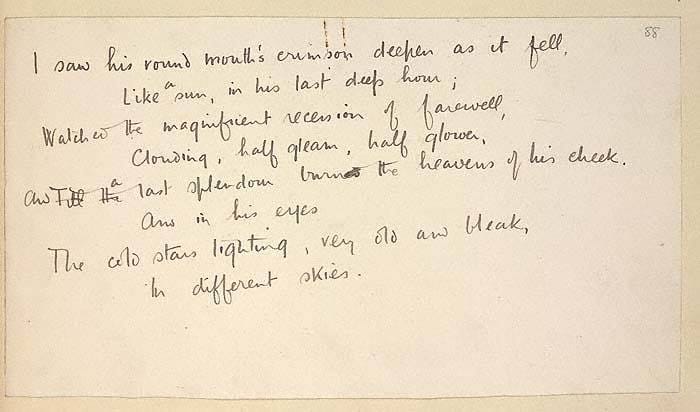 88
I saw his round mouth's crimson deepen as it fell,
Like a sun, in his last deep hour;
Watched the magnificent recession of farewell,
Clouding, half gleam, half glower,
And Till the a last splendour burn the heavens of his cheek.
And in his eyes
The cold stars lighting, very old and bleak,
In different skies.